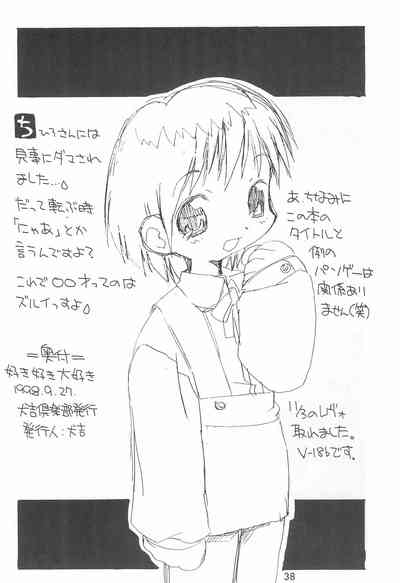 ちひろさんには
見事にダマされ
ました…。
だって転ぶ時
「にゃあ」とか
言うんですよ?
これで〇〇才ってのは
ズルイっすよ。
あ、ちなみに
この本の
タイトルと
例の
パンゲーは
関係あり
ません(笑)
=奥付=
好き好き大好き
1998.9.27.
犬吉倶楽部発行
発行人:犬吉
11/3のレヴォ
取れました。
V-18bです。
38